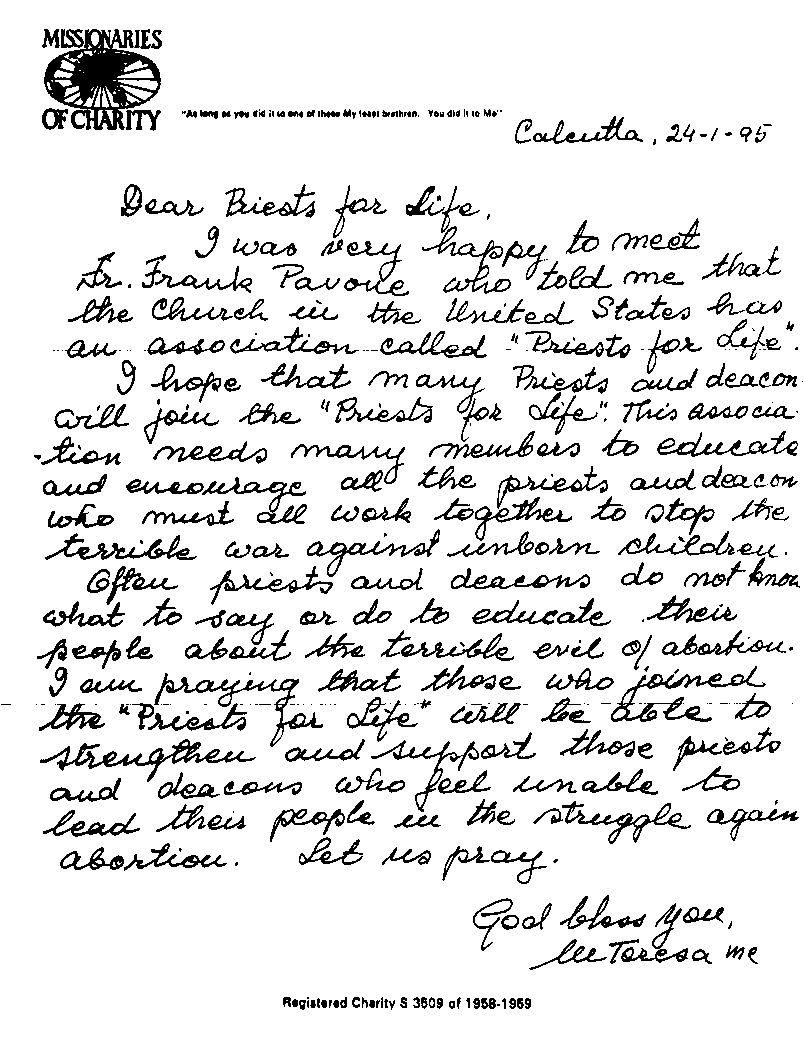 MISSIONARIES
OF CHARITY
"As long as you did it to one of these My least brethren. You did it to Me"
Calcutta, 24-1-95
Dear Priests for Life,
I was very happy to meet
Fr. Frank Pavone who told me that
the Church in the United States has
an association called "Priests for Life".
I hope that many Priests and deacon
will join the "Priests for Life". This associa
-tion needs many members to educate
and encourage all the priests and deacon
who must all work together to stop the
terrible war against unborn children.
Often priests and deacons do not know
what to say or do to educate their
people about the terrible evil of abortion.
I am praying that those who joined
the "Priests for Life" will be able to
strengthen and support those priests
and deacons who feel unable to
lead their people in the struggle again
abortion. Let us pray.
God bless you,
M Teresa mc
Registered Charity S 3509 of 1958-1959